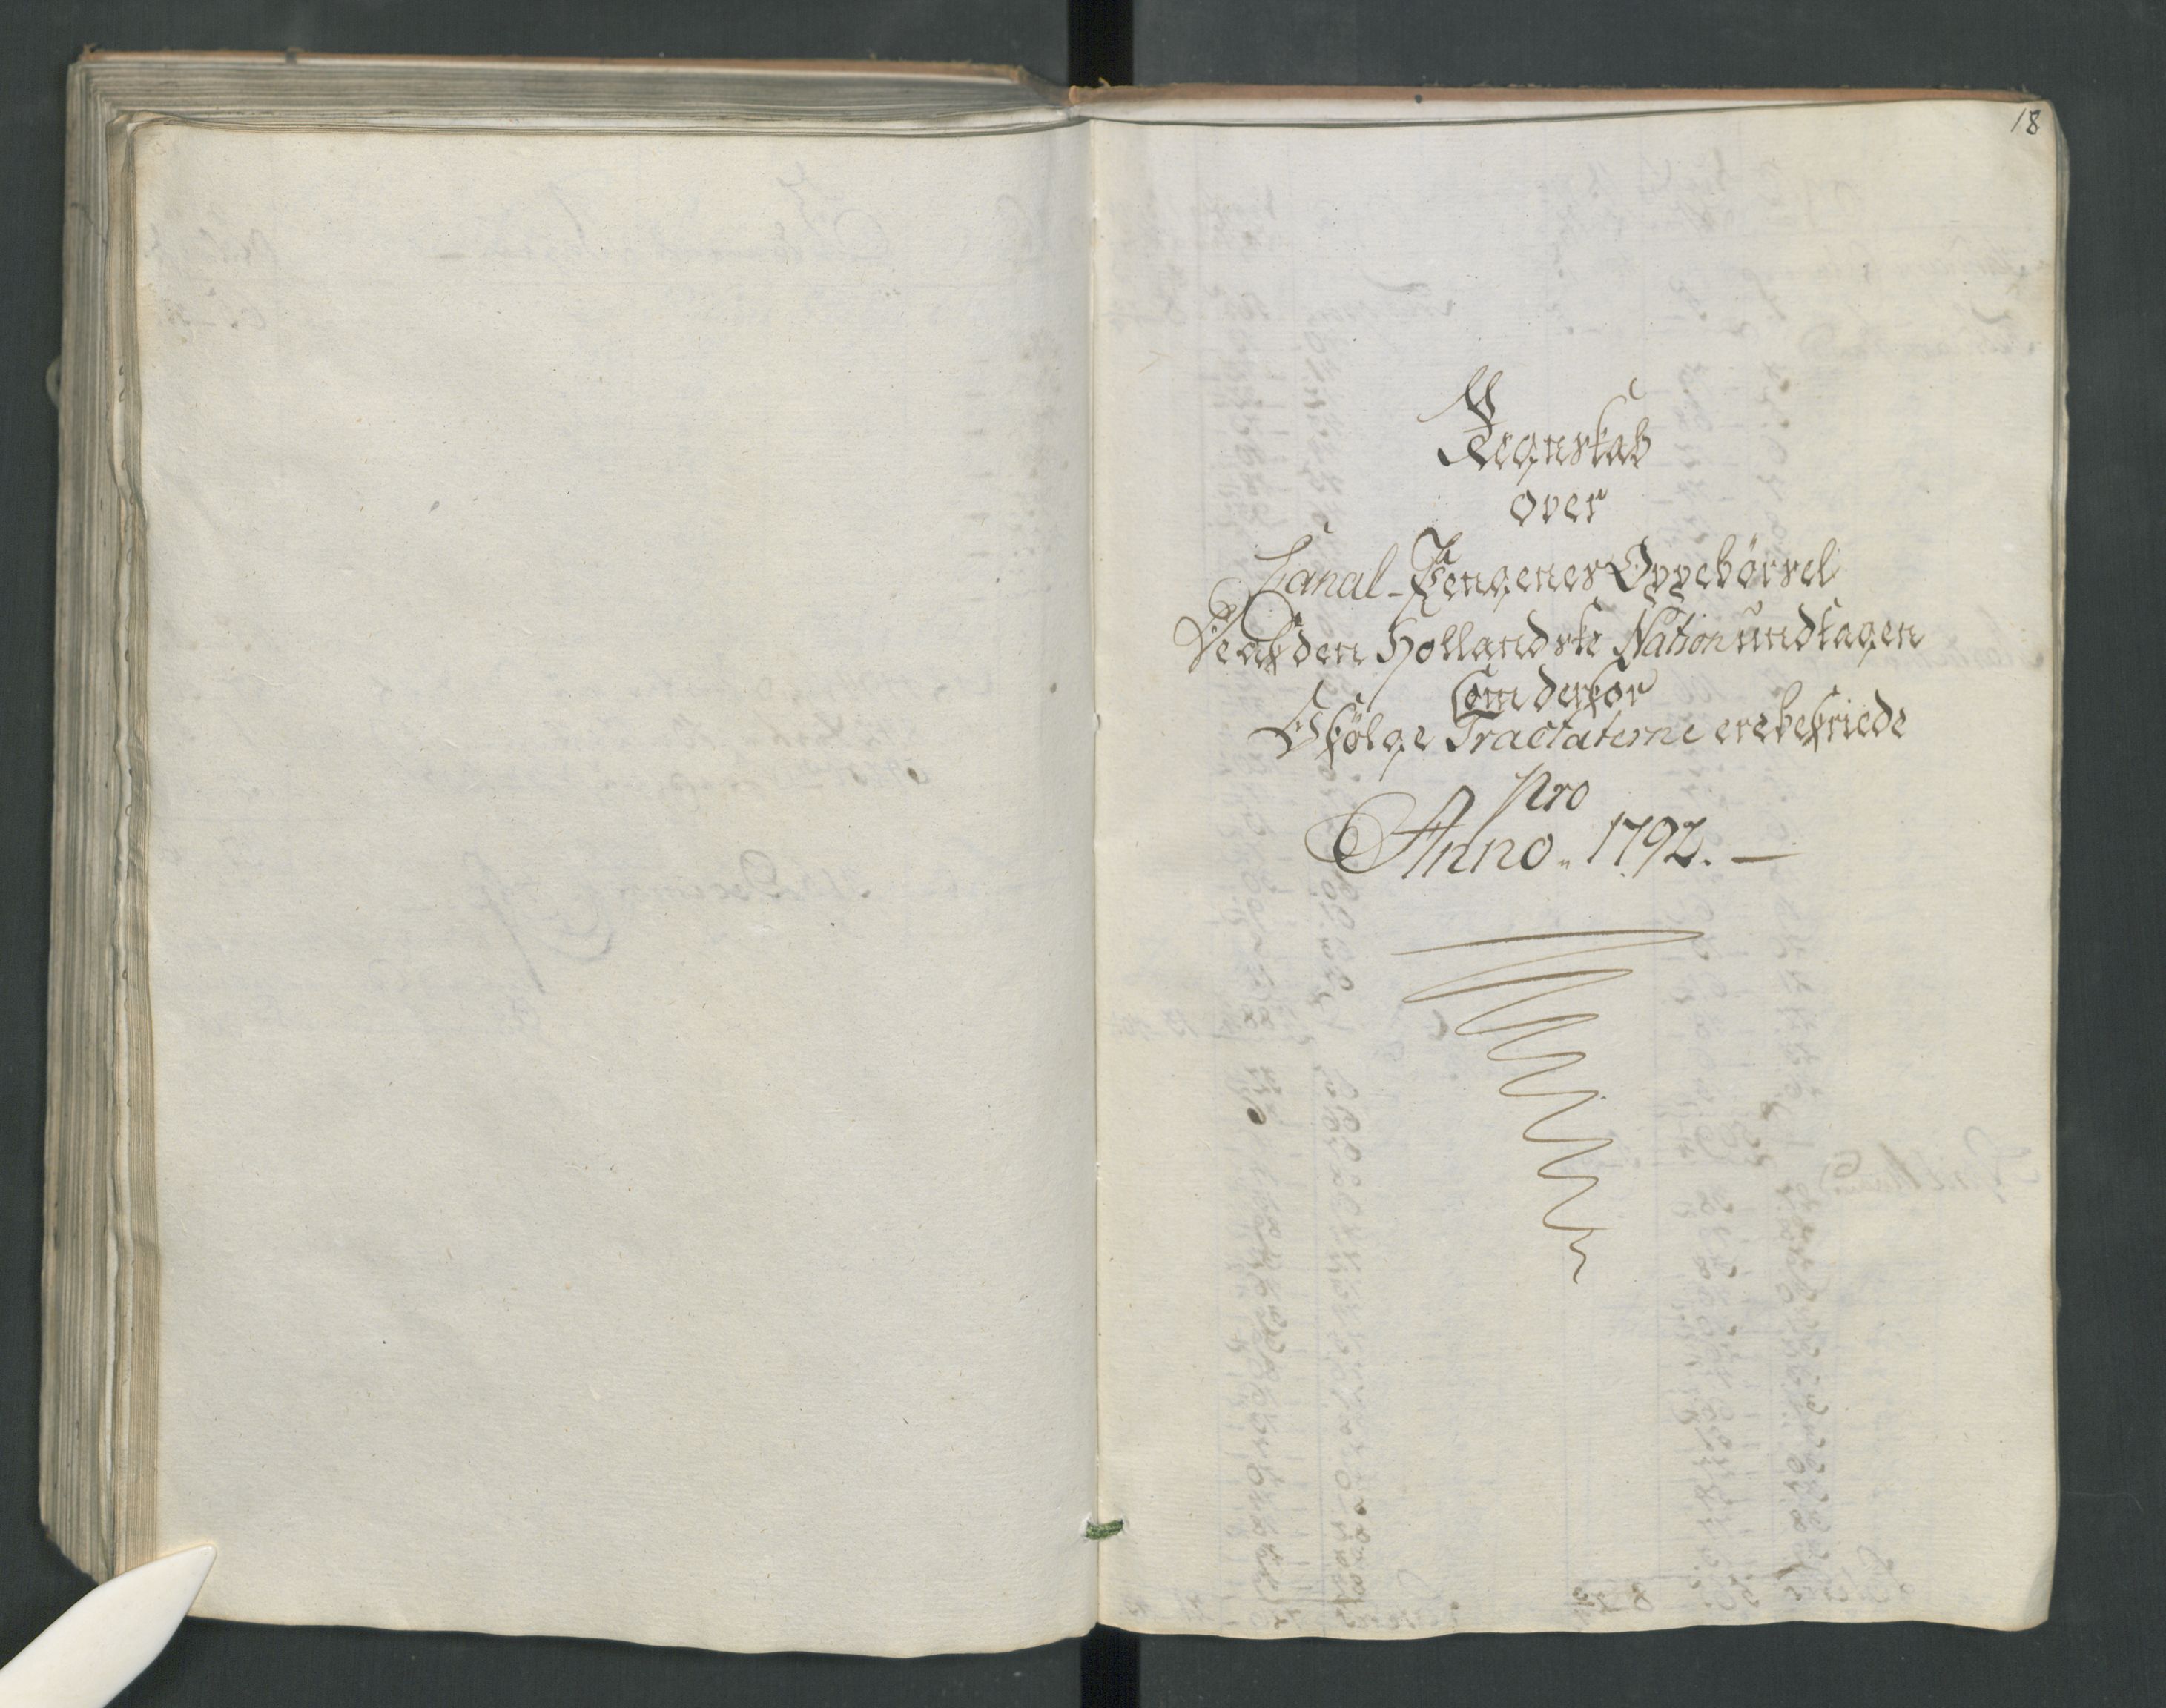 18
Regnskab
over
Canal-Pengenes Oppebörsel
De af den Hollandske Nation undtagen
Som derfor
Ifölge Tractaterne ere befriede
pro
Anno 1792.